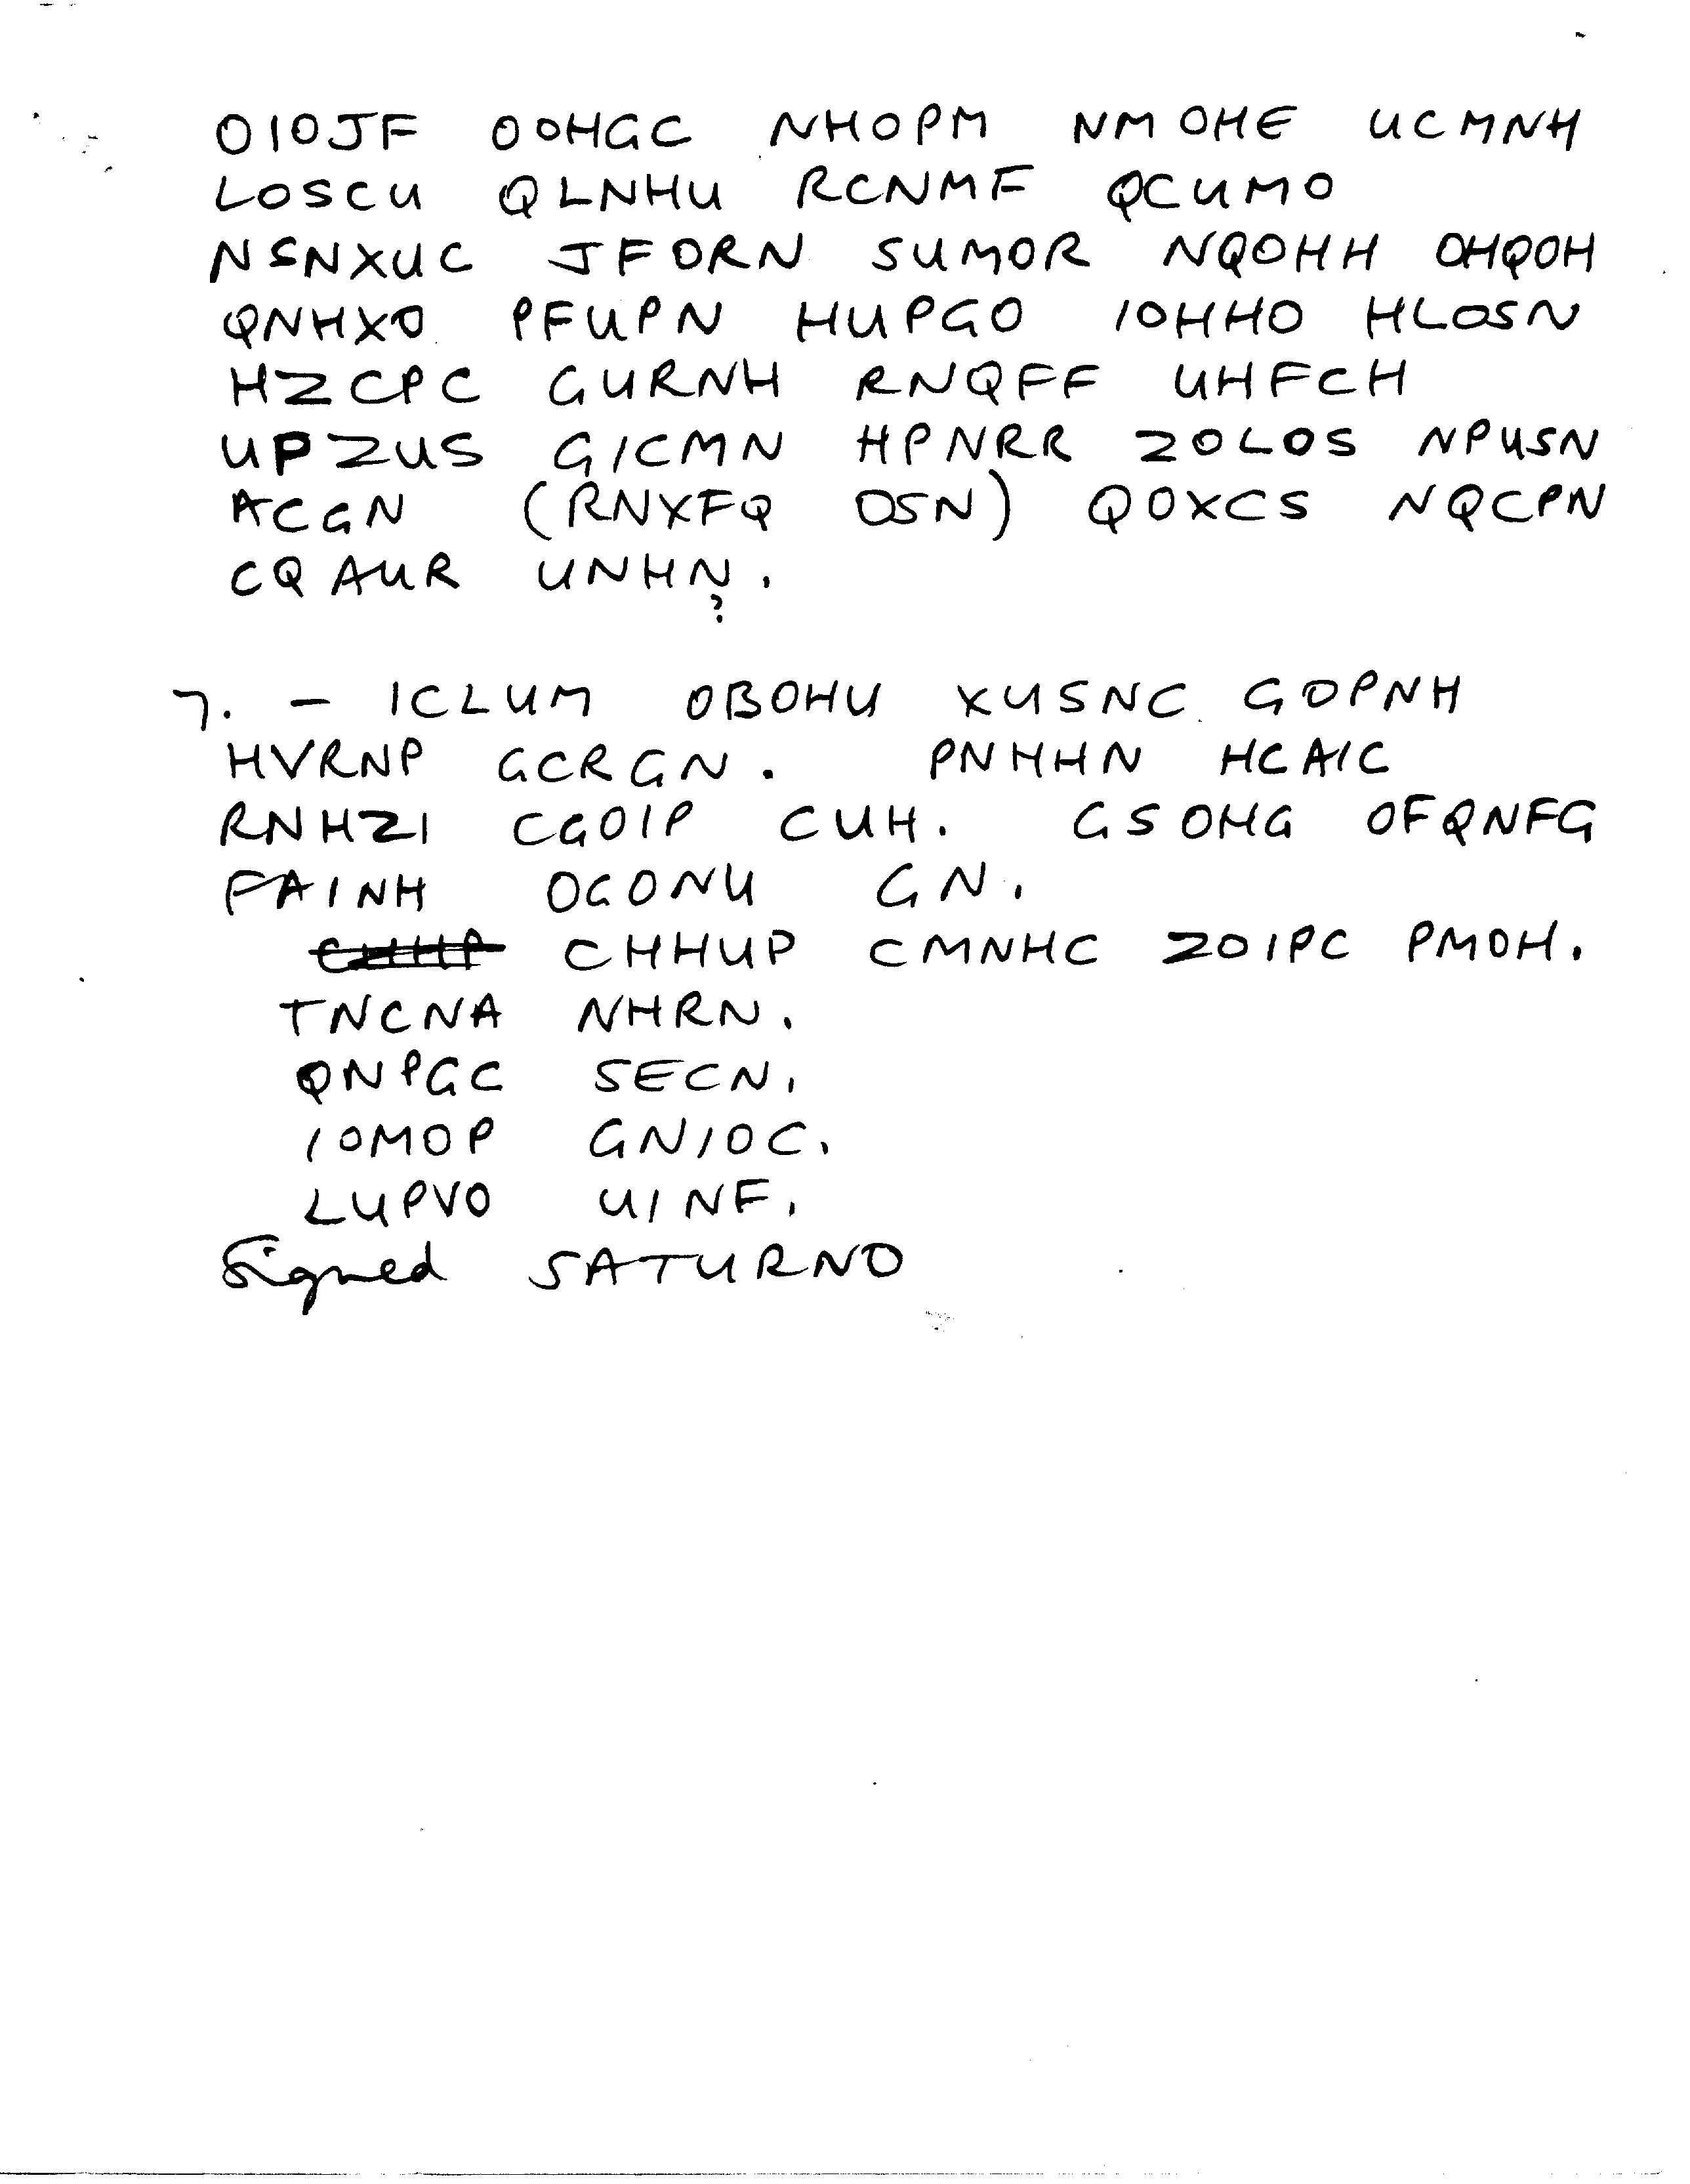 OIOJF OOHGC NHOPM NMOHE UCMNH
LOSCU QLNHU RCNMF QCUMO
NSNXUC JFORN SUMOR NQOHH OHQOH
QNHXO PFUPN HUPGO IOHHO HLOSN
HZCPC GURNH RNQFF UHFCH
UPZUS GICMN HPNRR ZOLOS NPUSN
ACGN (RNXFQ OSN) QOXCS NQCPN
CQAUR UNHN.
?
7. - ICLUM OBOHU XUSNC GOPNH
HVRNP GCRGN. PNHHN HCAIC
RNHZI CGOIP CUH. GSOHG OFQNFG
FAINH OGONU GN.
CHHUP CMNHC ZOIPC PMOH.
TNCNA NHRN.
QNPGC SECN.
IOMOP GNIOC.
LUPVO UINF.
Signed SATURNO